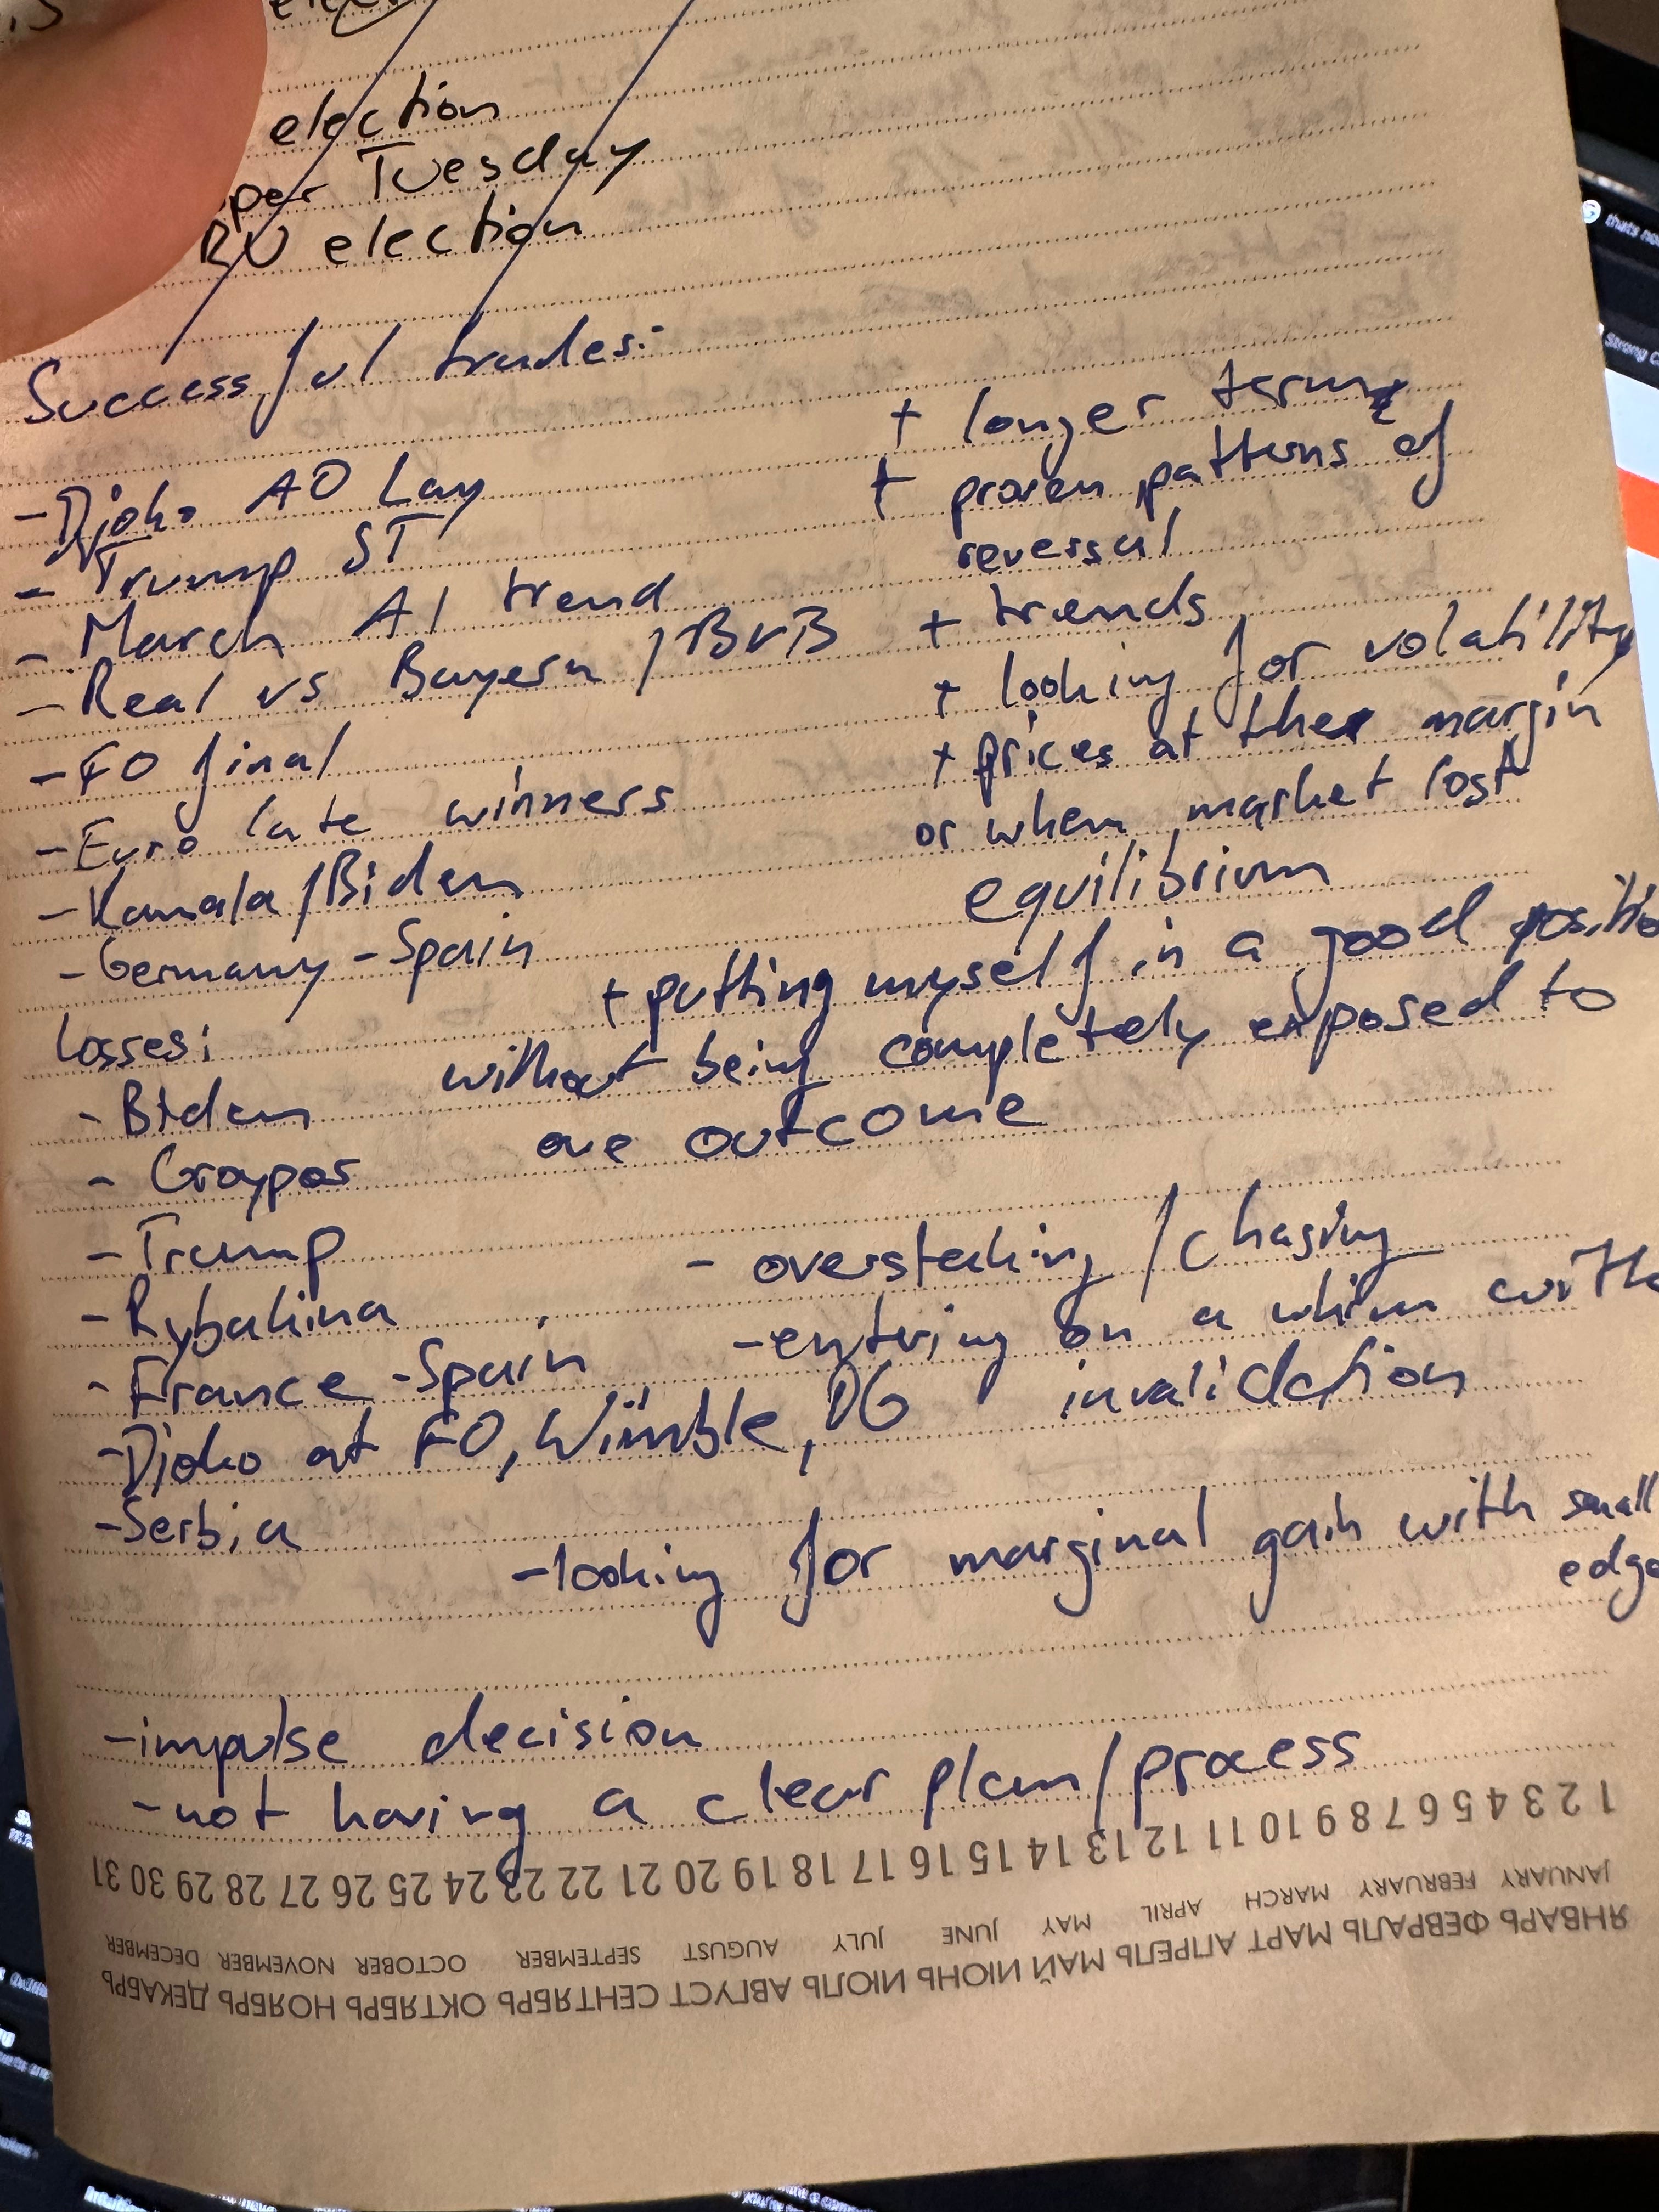 election
per Tuesday
RU election
Successful trades:
- Djoko AO Lay
- Trump ST
- March AI trend
- Real vs Bayern / BVB
- FO final
- Euro late winners
- Kamala / Biden
- Germany - Spain
+ longer term
+ proven patterns of
reversal
+ trends
+ looking for volatility
+ prices at the margin
or when market lost
equilibrium
+ putting myself in a good positio
without being completely exposed to
one outcome
Losses:
- Biden
- Groyper
- Trump
- Rybakina
- France - Spain
- Djoko at FO, Wimble, OG
- Serbia
- overstaking / chasing
- entering on a whim with
invalidation
- looking for marginal gain with small
edge
- impulse decision
- not having a clear plan / process
1 2 3 4 5 6 7 8 9 10 11 12 13 14 15 16 17 18 19 20 21 22 23 24 25 26 27 28 29 30 31
JANUARY FEBRUARY MARCH APRIL MAY JUNE JULY AUGUST SEPTEMBER OCTOBER NOVEMBER DECEMBER
ЯНВАРЬ ФЕВРАЛЬ МАРТ АПРЕЛЬ МАЙ ИЮНЬ ИЮЛЬ АВГУСТ СЕНТЯБРЬ ОКТЯБРЬ НОЯБРЬ ДЕКАБРЬ
thats no
Strong C